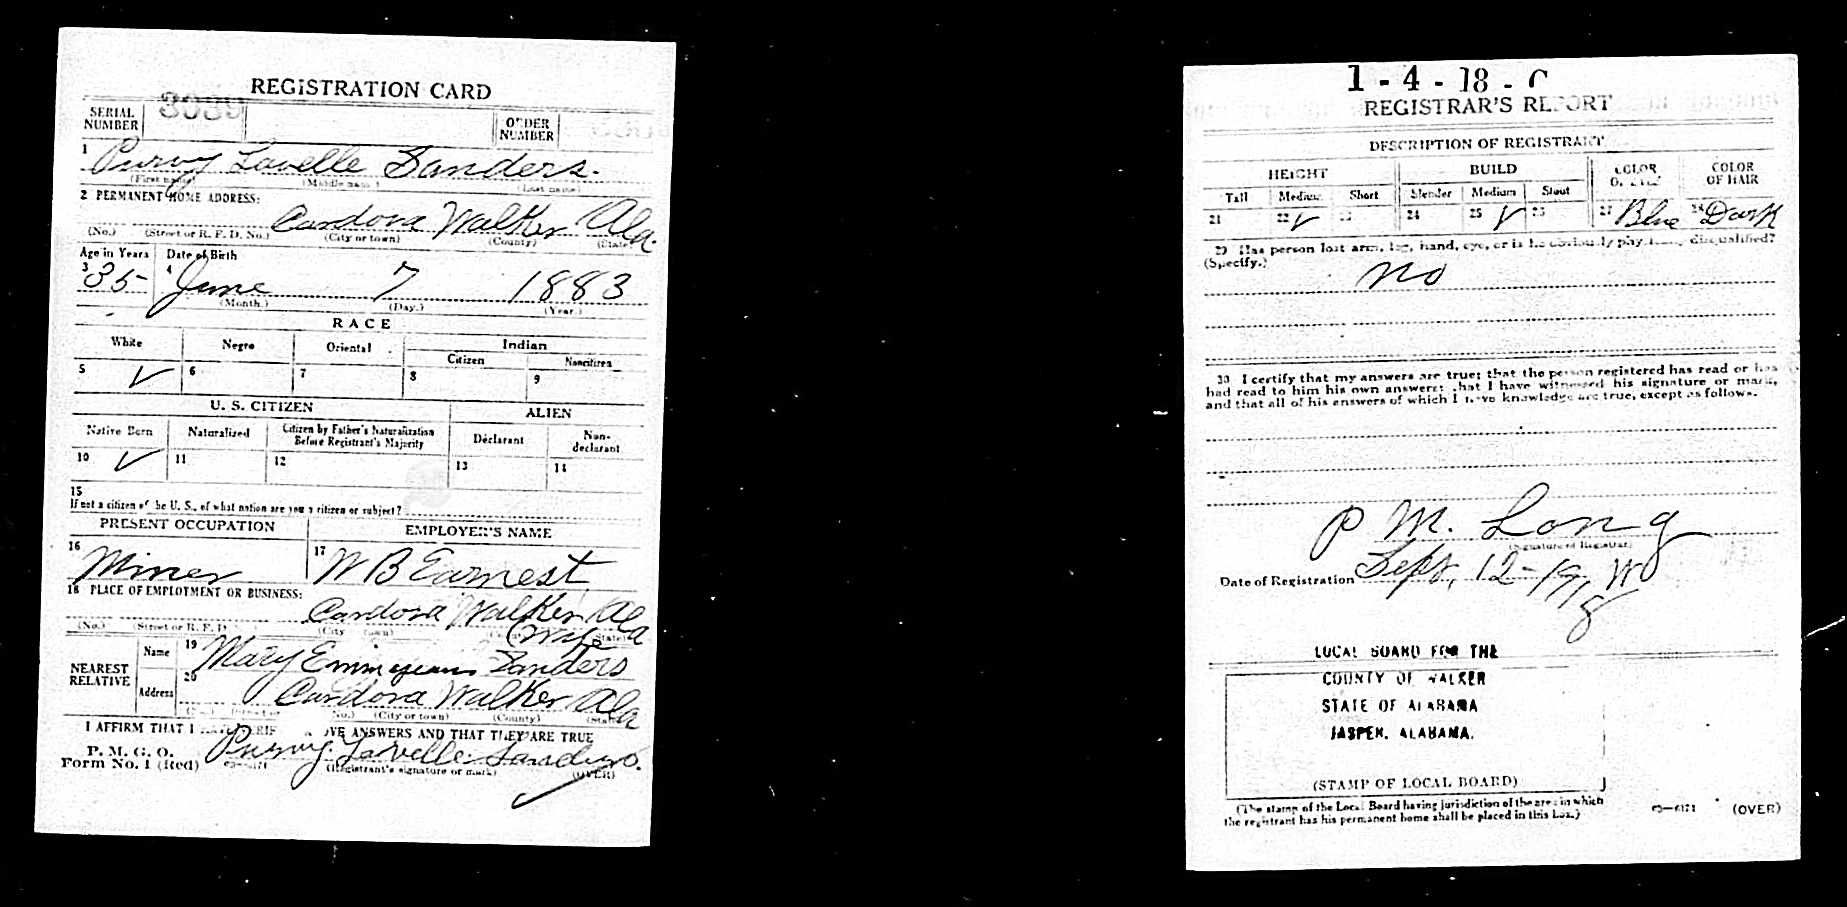 REGISTRATION CARD
SERIAL NUMBER 3039 ORDER NUMBER
1 Purvy Lavelle Sanders.
(First name) (Middle name) (Last name)
2 PERMANENT HOME ADDRESS:
Cardova Walker Ala.
(No.) (Street or R. F. D. No.) (City or town) (County) (State)
Age in Years Date of Birth
3 35 4 June 7 1883
(Month.) (Day.) (Year.)
RACE
White Negro Oriental Indian
Citizen Noncitizen
5 ✓ 6 7 8 9
U. S. CITIZEN ALIEN
Native Born Naturalized Citizen by Father's Naturalization Before Registrant's Majority Declarant Non-declarant
10 ✓ 11 12 13 14
15
If not a citizen of the U. S., of what nation are you a citizen or subject?
PRESENT OCCUPATION EMPLOYER'S NAME
16 Miner 17 W B Earnest
18 PLACE OF EMPLOYMENT OR BUSINESS:
Cardova Walker Ala
(No.) (Street or R. F. D. (City town) (State)
NEAREST RELATIVE Name 19 Mary Sanders
Address 20 Cardova Walker Ala
No.) (City or town) (County) (State)
I AFFIRM THAT I OVE ANSWERS AND THAT THEY ARE TRUE
P. M. G. O.
Form No. 1 (Red) Purvy Lavelle Sanders.
(Registrant's signature or mark) (OVER)
1 - 4 - 18 - C
REGISTRAR'S REPORT
DESCRIPTION OF REGISTRANT
HEIGHT BUILD COLOR OF EYES COLOR OF HAIR
Tall Medium Short Slender Medium Stout
21 22 ✓ 23 24 25 ✓ 26 27 Blue 28 Dark
29 Has person lost arm, leg, hand, eye, or is he obviously physically disqualified?
(Specify.) no
30 I certify that my answers are true; that the person registered has read or has
had read to him his own answers; that I have witnessed his signature or mark,
and that all of his answers of which I have knowledge are true, except as follows.
P M. Long
(Signature of Registrar)
Date of Registration Sept, 12 - 1918
LOCAL BOARD FOR THE
COUNTY OF WALKER
STATE OF ALABAMA
JASPER, ALABAMA.
(STAMP OF LOCAL BOARD)
(The stamp of the Local Board having jurisdiction of the area in which
the registrant has his permanent home shall be placed in this box.)
03—6171 (OVER)